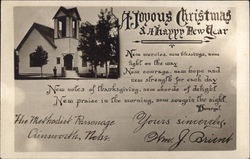 A Joyous Christmas
& A Happy New Year
New mercies, new blessings, new
light on the way
New courage, new hope and
new strength for each day
New notes of thanksgiving, new chords of delight
New praise in the morning, new songs in the night
Havergal
The Methodist Parsonage
Ainsworth, Nebr.
Yours sincerely,
Wm. J. Brient